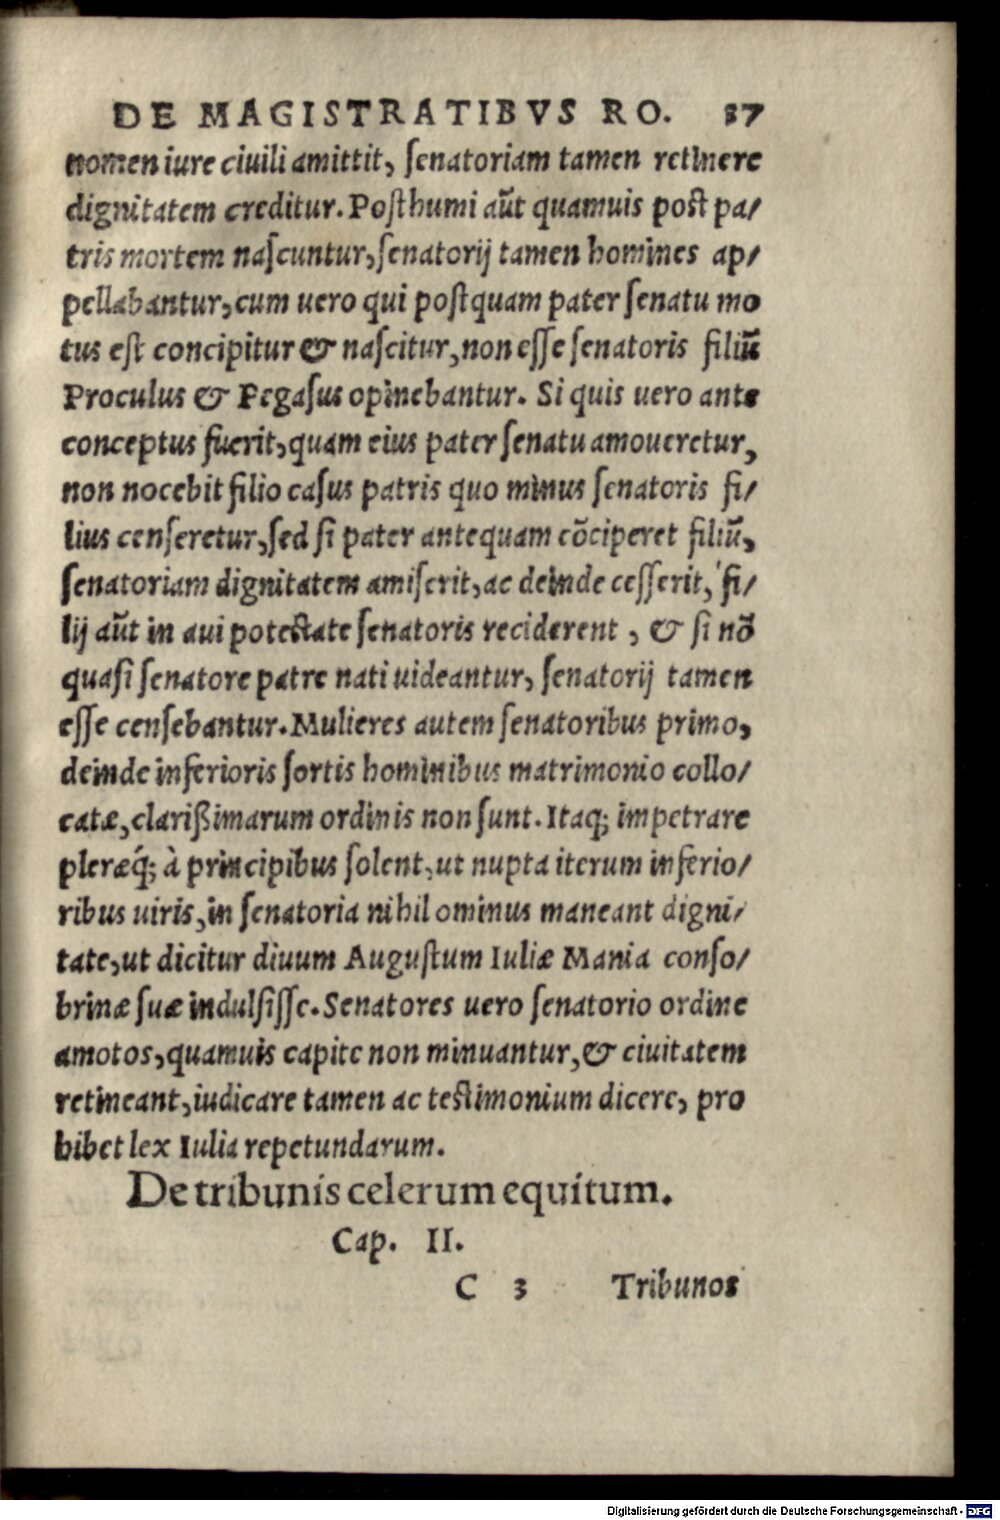 DE MAGISTRATIBVS RO. 37
nomen iure ciuili amittit, ſenatoriam tamen retinere
dignitatem creditur. Poſthumi aũt quamuis poſt pa/
tris mortem naſcuntur, ſenatorij tamen homines ap/
pellabantur, cum uero qui poſtquam pater ſenatu mo
tus eſt concipitur & naſcitur, non eſſe ſenatoris filiũ
Proculus & Pegaſus opinebantur. Si quis uero ante
conceptus fuerit, quam eius pater ſenatu amoueretur,
non nocebit filio caſus patris quo minus ſenatoris fi/
lius cenſeretur, ſed ſi pater antequam cõciperet filiũ,
ſenatoriam dignitatem amiſerit, ac deinde ceſſerit, fi/
lij aũt in aui poteſtate ſenatoris reciderent, & ſi nõ
quaſi ſenatore patre nati uideantur, ſenatorij tamen
eſſe cenſebantur. Mulieres autem ſenatoribus primo,
deinde inferioris ſortis hominibus matrimonio collo/
catæ, clarißimarum ordinis non ſunt. Itaq; impetrare
pleræq́; à principibus ſolent, ut nupta iterum inferio/
ribus uiris, in ſenatoria nihil ominus maneant digni/
tate, ut dicitur diuum Auguſtum Iuliæ Mania conſo/
brinæ ſuæ indulſiſſe. Senatores uero ſenatorio ordine
amotos, quamuis capite non minuantur, & ciuitatem
retineant, iudicare tamen ac teſtimonium dicere, pro
hibet lex Iulia repetundarum.
De tribunis celerum equitum.
Cap. II.
C 3 Tribunos
Digitalisierung gefördert durch die Deutsche Forschungsgemeinschaft - DFG